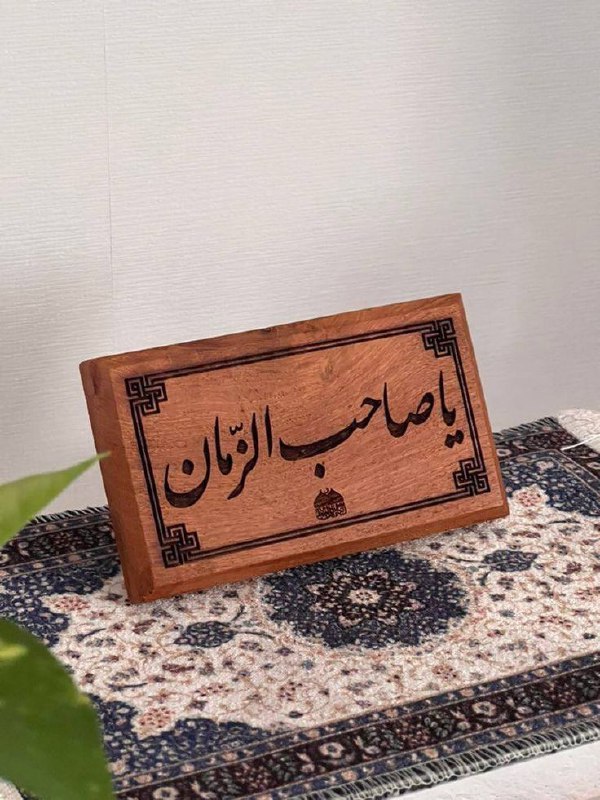 یا صاحب الزّمان